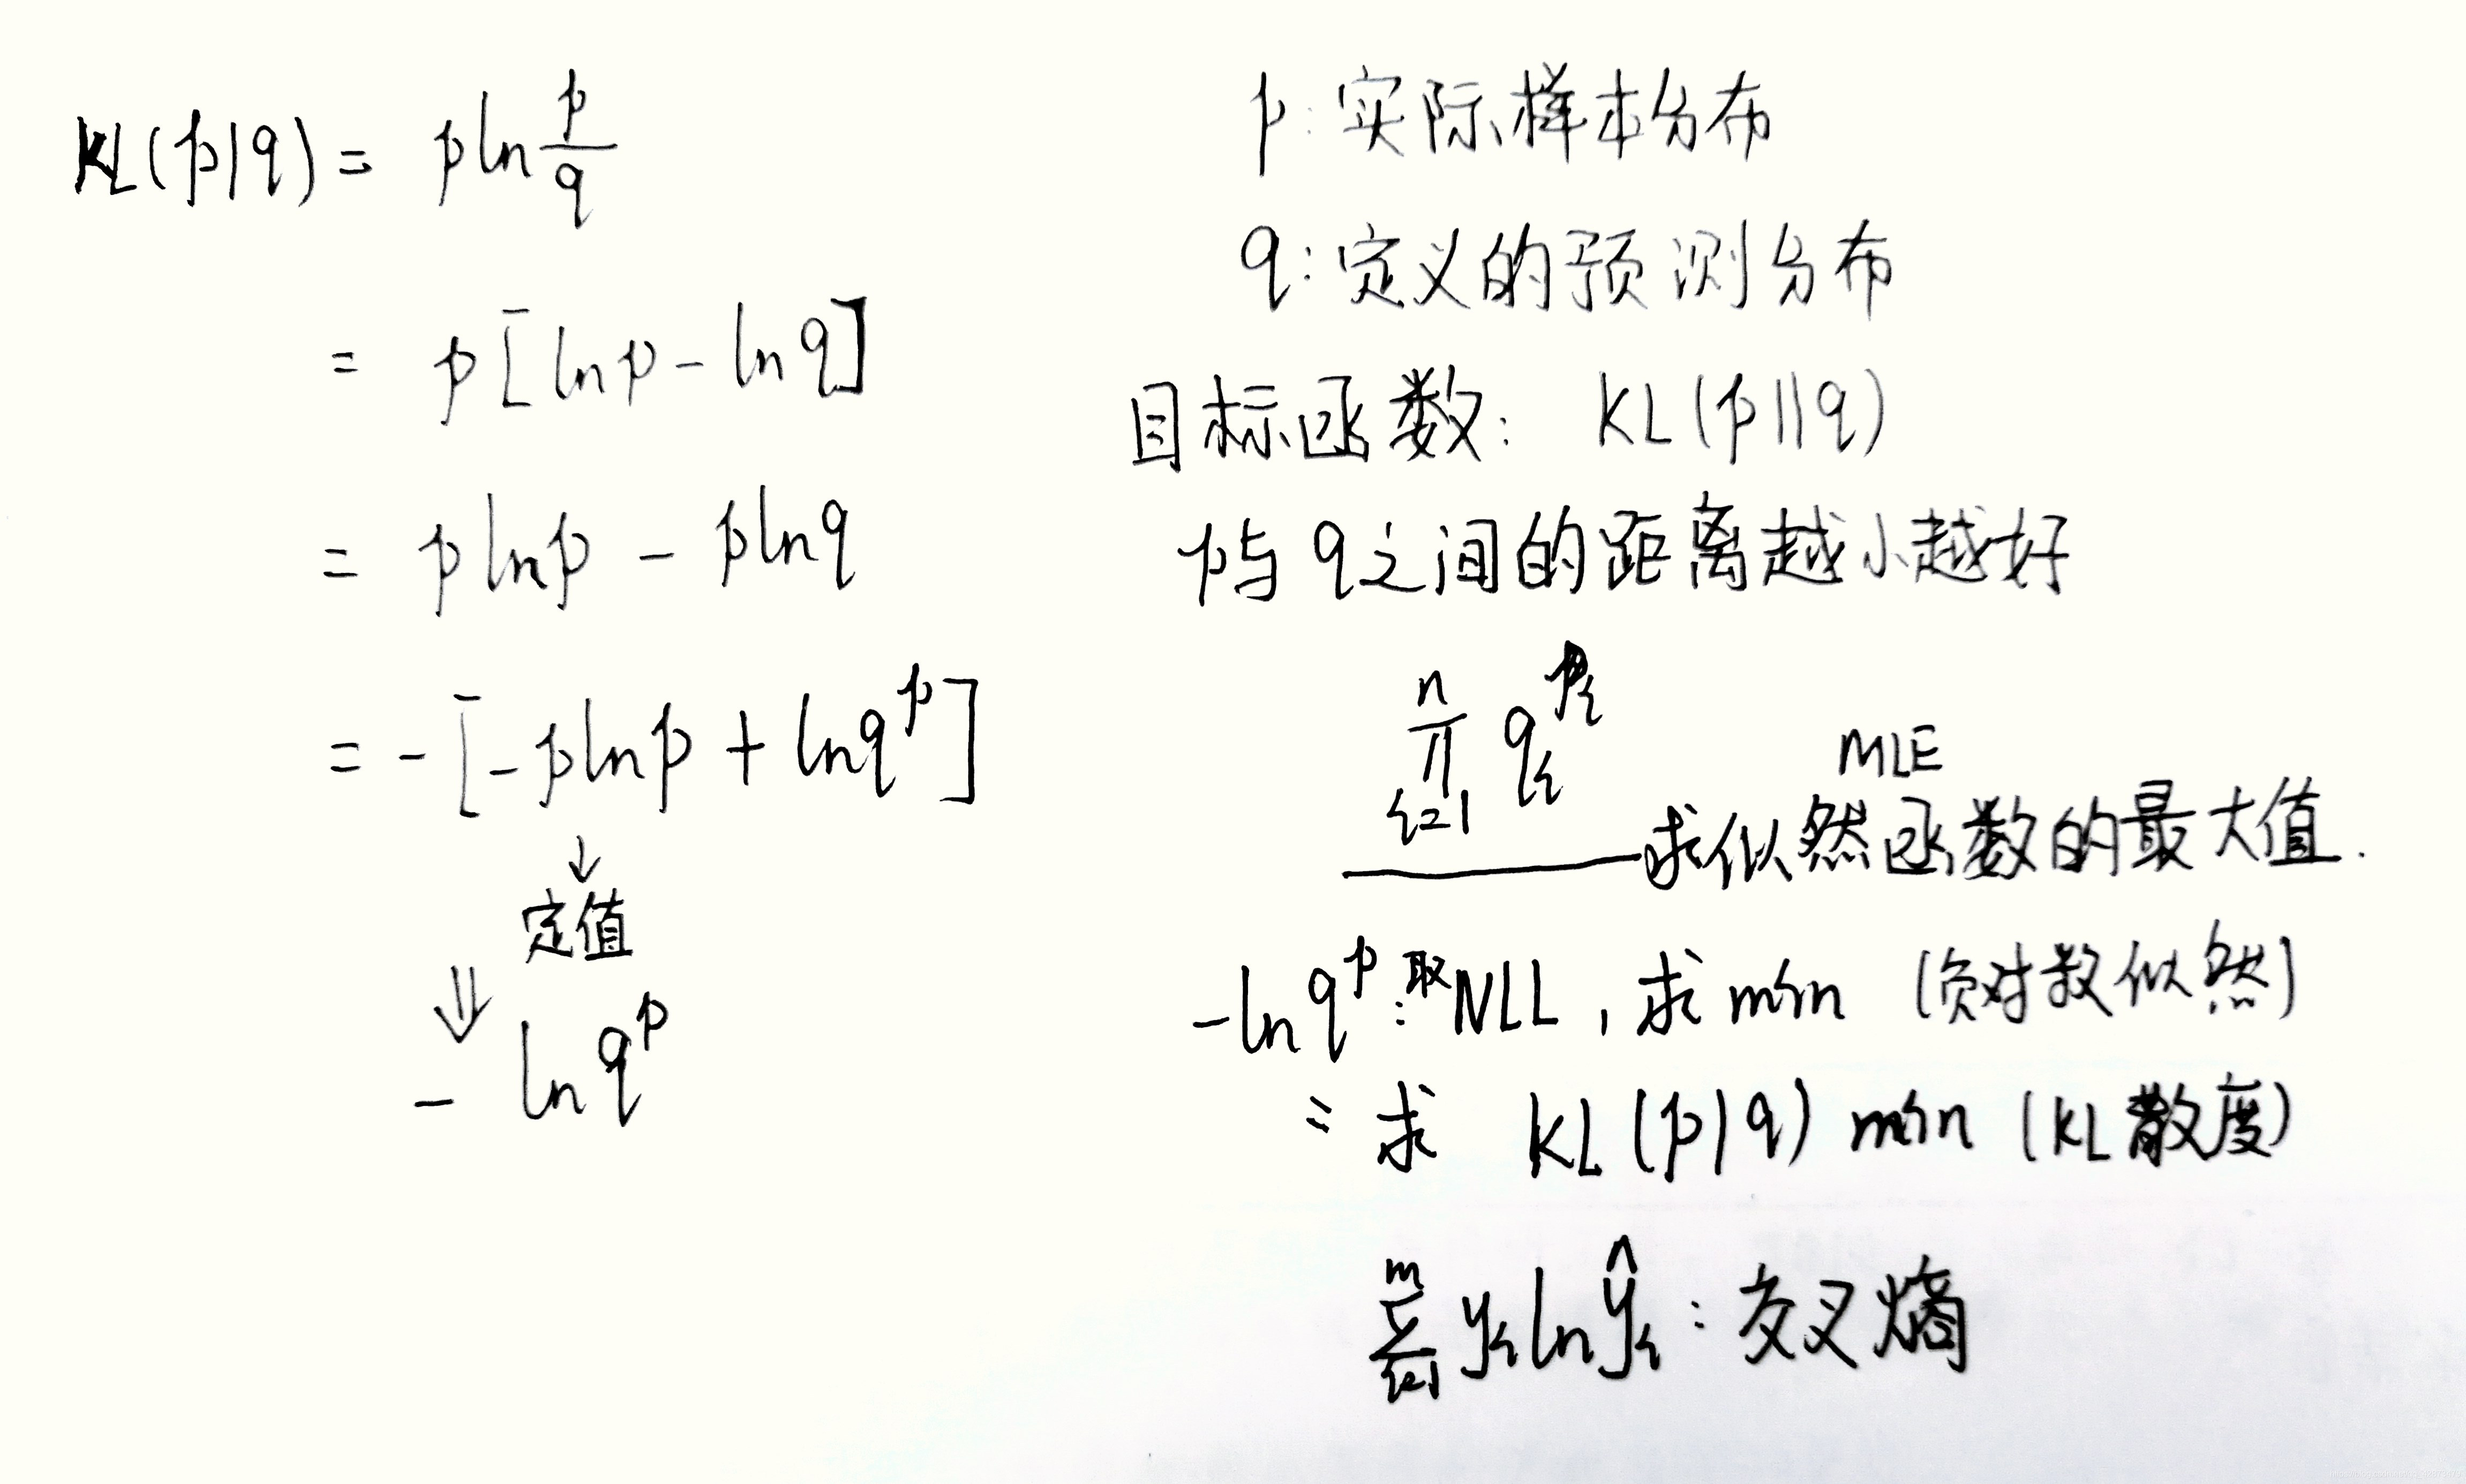 KL(p|q) = p ln p/q
= p[ln p - ln q]
= p ln p - p ln q
= -[-p ln p + ln q^p]
↓
定值
⇓
- ln q^p
p: 实际样本分布
q: 定义的预测分布
目标函数: KL(p||q)
p与q之间的距离越小越好
∏_{i=1}^{n} q_i^{p_i}
MLE
求似然函数的最大值.
-ln q^p: 取NLL, 求min (负对数似然)
= 求 KL(p|q) min (KL散度)
∑_{i=1}^{m} y_i ln ŷ_i : 交叉熵